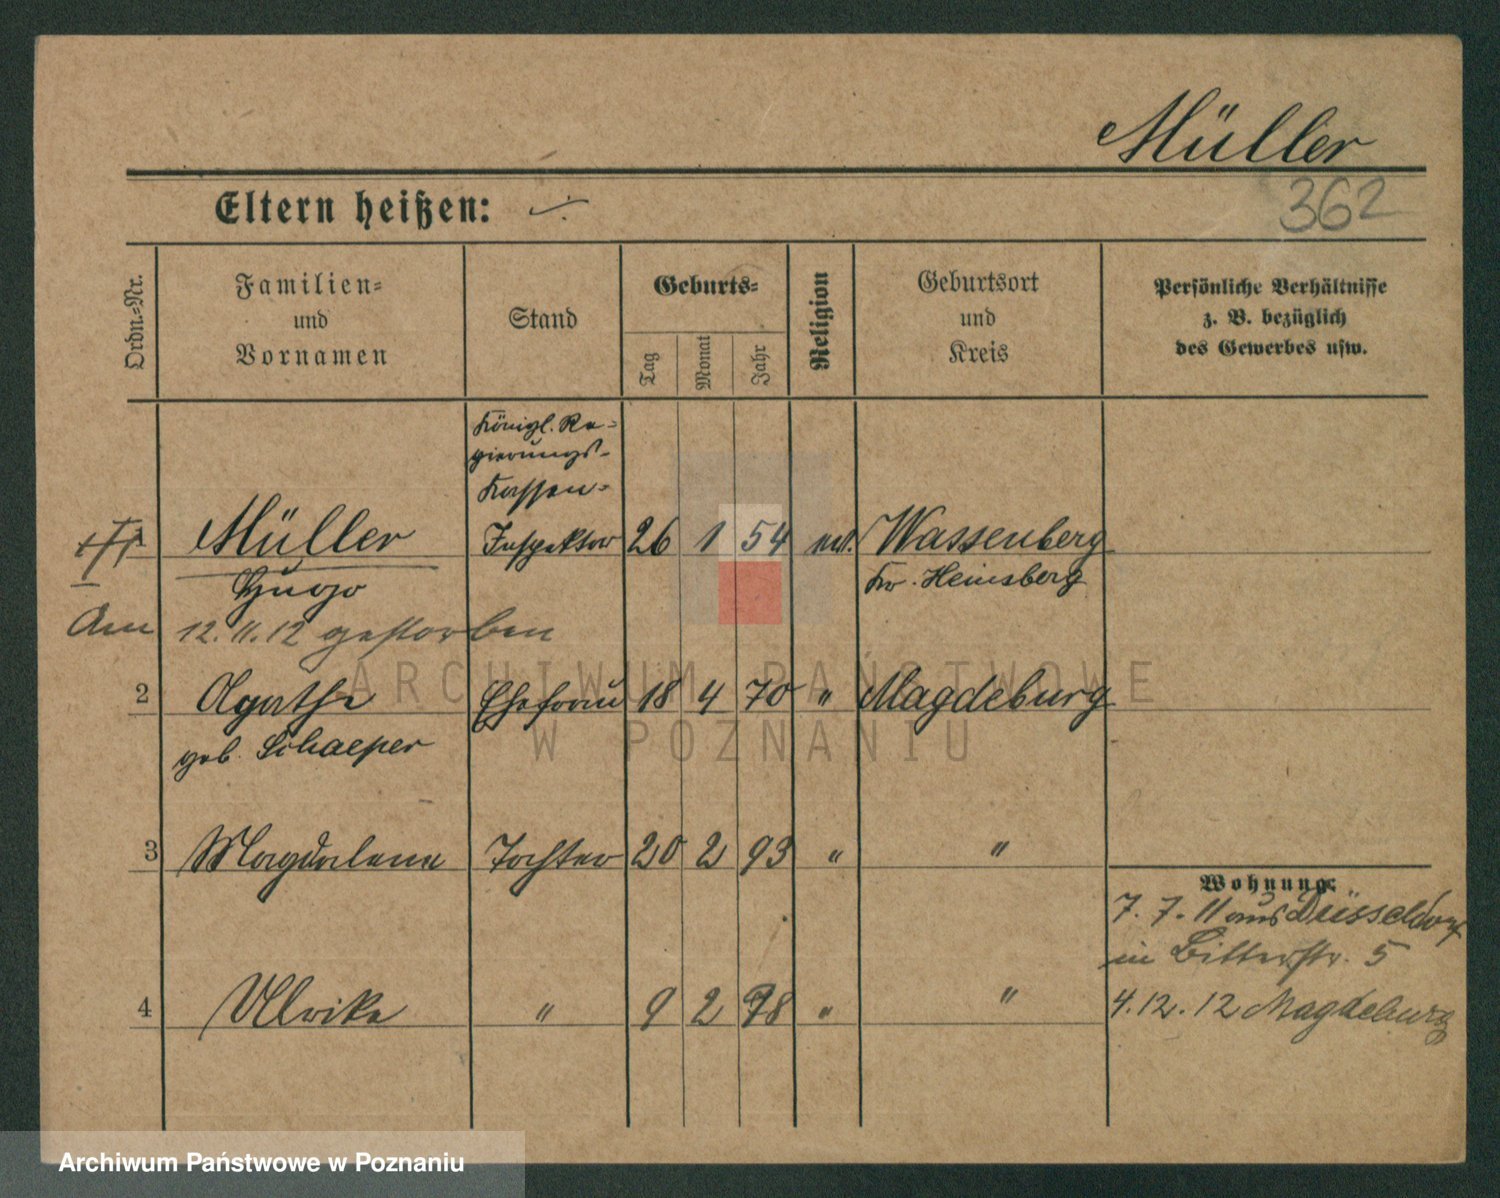 Müller
362
Eltern heißen: ·/·
Ordn.-Nr.
Familien-
und
Vornamen
Stand
Geburts-
Tag
Monat
Jahr
Religion
Geburtsort
und
Kreis
Persönliche Verhältnisse
z. B. bezüglich
des Gewerbes usw.
Königl. Re-
gierungs-
Kassen-
1 Müller Inspektor 26 1 54 Wassenberg
Hugo Kr. Heinsberg
Am 12.11.12 gestorben
2 Agathe Ehefrau 18 4 70 " Magdeburg
geb. Schaeper
3 Magdalena Tochter 20 2 93 " "
Wohnung:
7. 7. 11 aus Düsseldorf
in Bitterstr. 5
4 Ulrike " 9 2 98 " "
4.12.12 Magdeburg
ARCHIWUM PAŃSTWOWE
W POZNANIU
Archiwum Państwowe w Poznaniu